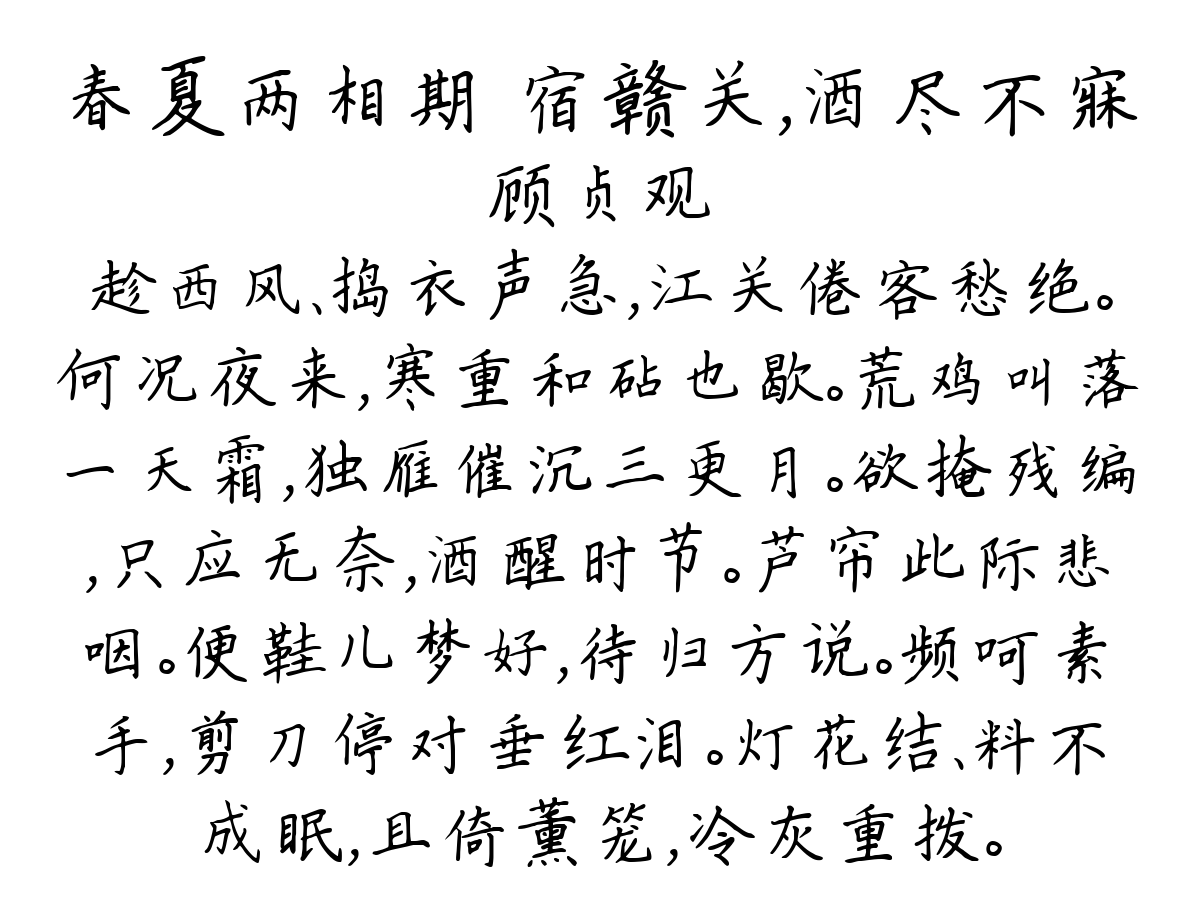 春夏两相期 宿赣关,酒尽不寐
顾贞观
趁西风、捣衣声急,江关倦客愁绝。
何况夜来,寒重和砧也歇。荒鸡叫落
一天霜,独雁催沉三更月。欲掩残编
,只应无奈,酒醒时节。芦帘此际悲
咽。便鞋儿梦好,待归方说。频呵素
手,剪刀停对垂红泪。灯花结、料不
成眠,且倚薰笼,冷灰重拨。